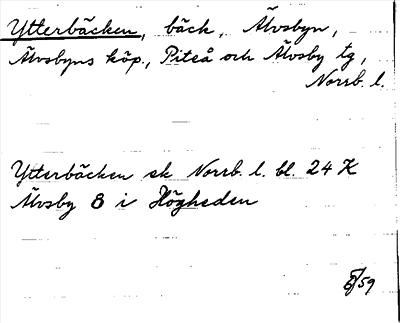 Ytterbäcken, bäck, Älvsbyn,
Älvsbyns köp., Piteå och Älvsby tg,
Norrb. l.
Ytterbäcken ek Norrb. l. bl. 24 K
Älvsby 8 i Högheden
/59